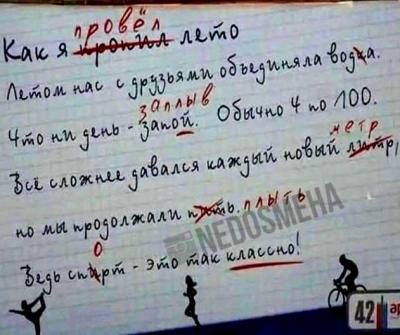 провёл
Как я пропил лето
Летом нас с друзьями объединяла водка.
заплыв
Что ни день - запой. Обычно 4 по 100.
метр
Всё сложнее давался каждый новый литр,
но мы продолжали пить. плыть
о
Ведь спирт - это так классно!
NEDOSMEHA
42